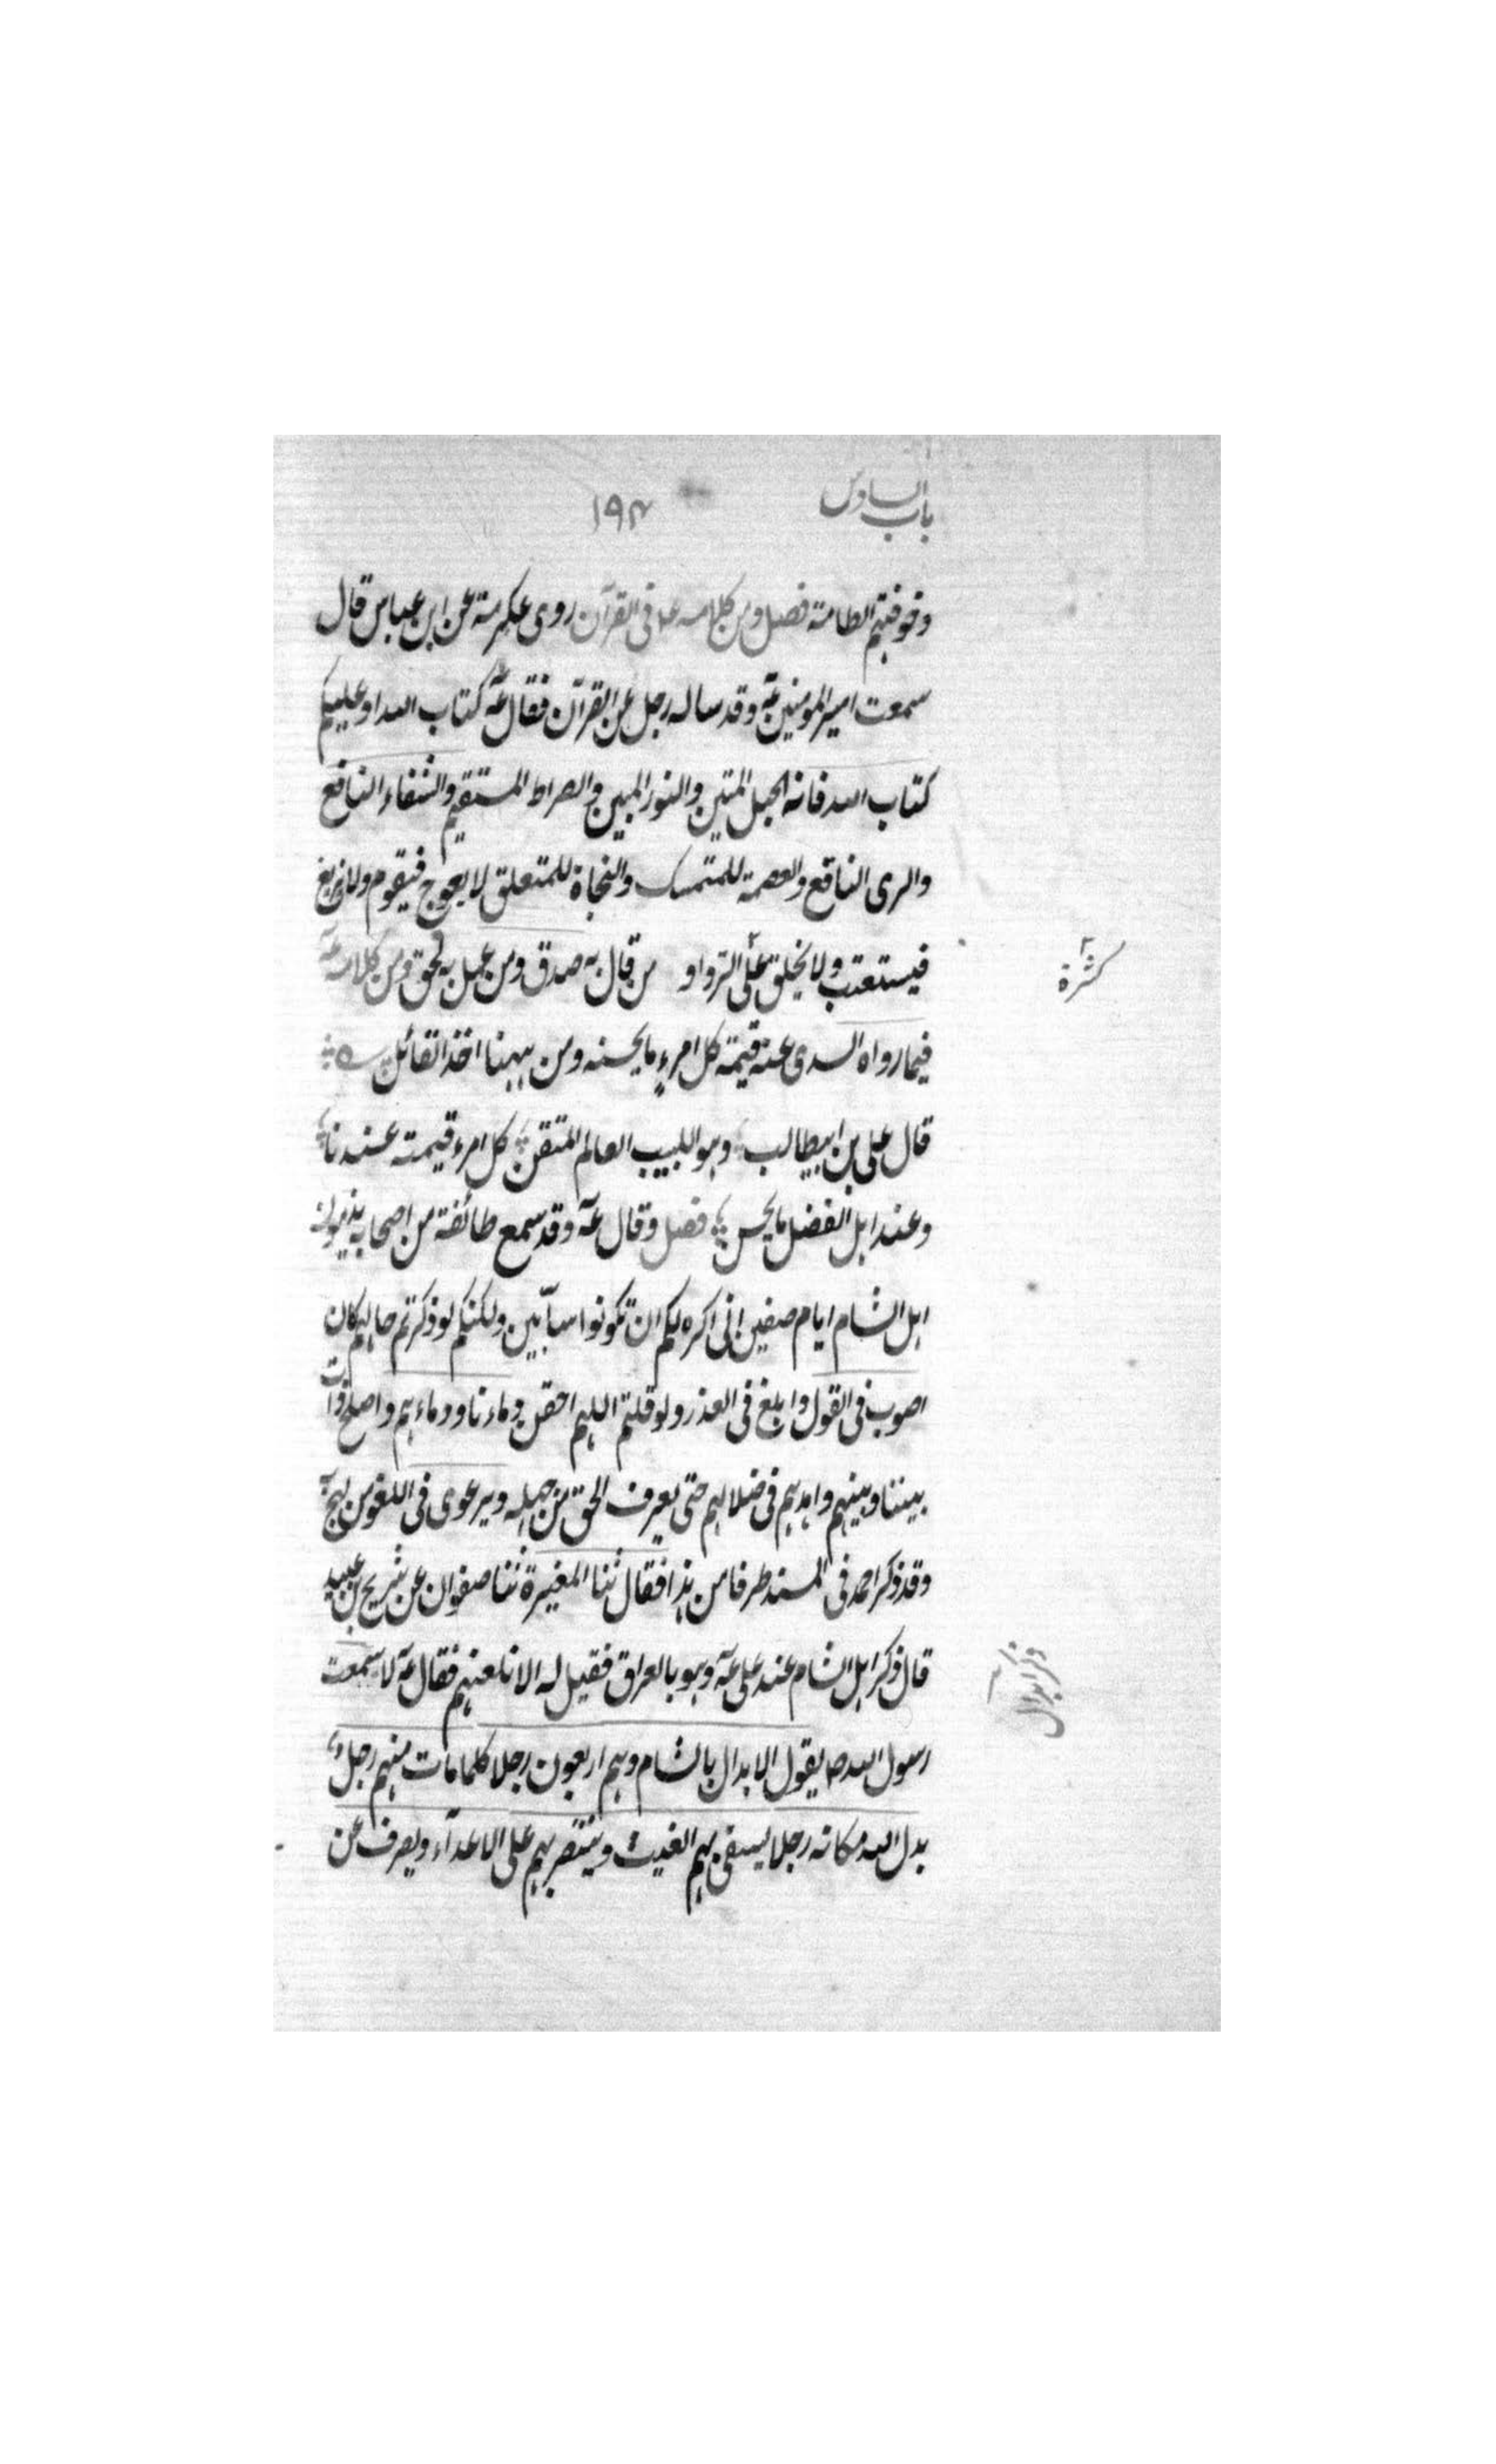 باب السادس
۱۹۴
وخوفتهم الطامة فصل ومن كلامه عه فى القرآن روى عكرمة عن ابن عباس قال
سمعت امير المومنين عه وقد ساله رجل عن القرآن فقال عه كتاب الله او عليكم
كتاب الله فانه الحبل المتين والنور المبين والصراط المستقيم والشفاء النافع
والرى الناقع والعصمة للمتمسك والنجاة للمتعلق لا يعوج فيقوم ولا يزيغ
فيستعتب ولا يخلق على الترداد من قال به صدق ومن عمل به لحق ومن كلامه عه
كثرة
فيما رواه السدى عنه قيمة كل امرء ما يحسنه ومن ههنا اخذ القائل
قال على بن ابيطالب وهو اللبيب العالم المتقن كل امرء قيمته عندنا
وعند اهل الفضل ما يحسن فصل وقال عه وقد سمع طائفة من اصحابه يذمون
اهل الشام ايام صفين انى اكره لكم ان تكونوا سبّابين ولكنكم لو ذكرتم حالهم كان
اصوب فى القول وابلغ فى العذر ولو قلتم اللهم احقن دماءنا ودماءهم واصلح ذات
بيننا وبينهم واهدهم فى ضلالهم حتى يعرف الحق من جهله ويرعوى فى اللغو من لهج به
وقد ذكر احمد فى المسند طرفا من هذا فقال ثنا المغيرة ثنا صفوان عن شريح بن عبيد
قال ذكر اهل الشام عند على عه وهو بالعراق فقيل له الا نلعنهم فقال عه لا سمعت
ذكر ابدال
رسول الله ص يقول الابدال بالشام وهم اربعون رجلا كلما مات منهم رجل
بدل الله مكانه رجلا يسقى بهم الغيث وينتصر بهم على الاعدآء ويصرف عن